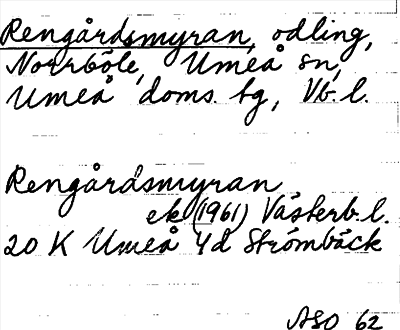 Rengårdsmyran, odling,
Norrböle, Umeå sn,
Umeå doms. tg, Vb. l.
Rengårdsmyran
ek (1961) Västerb. l.
20 K Umeå 4d Strömbäck
ASO 62